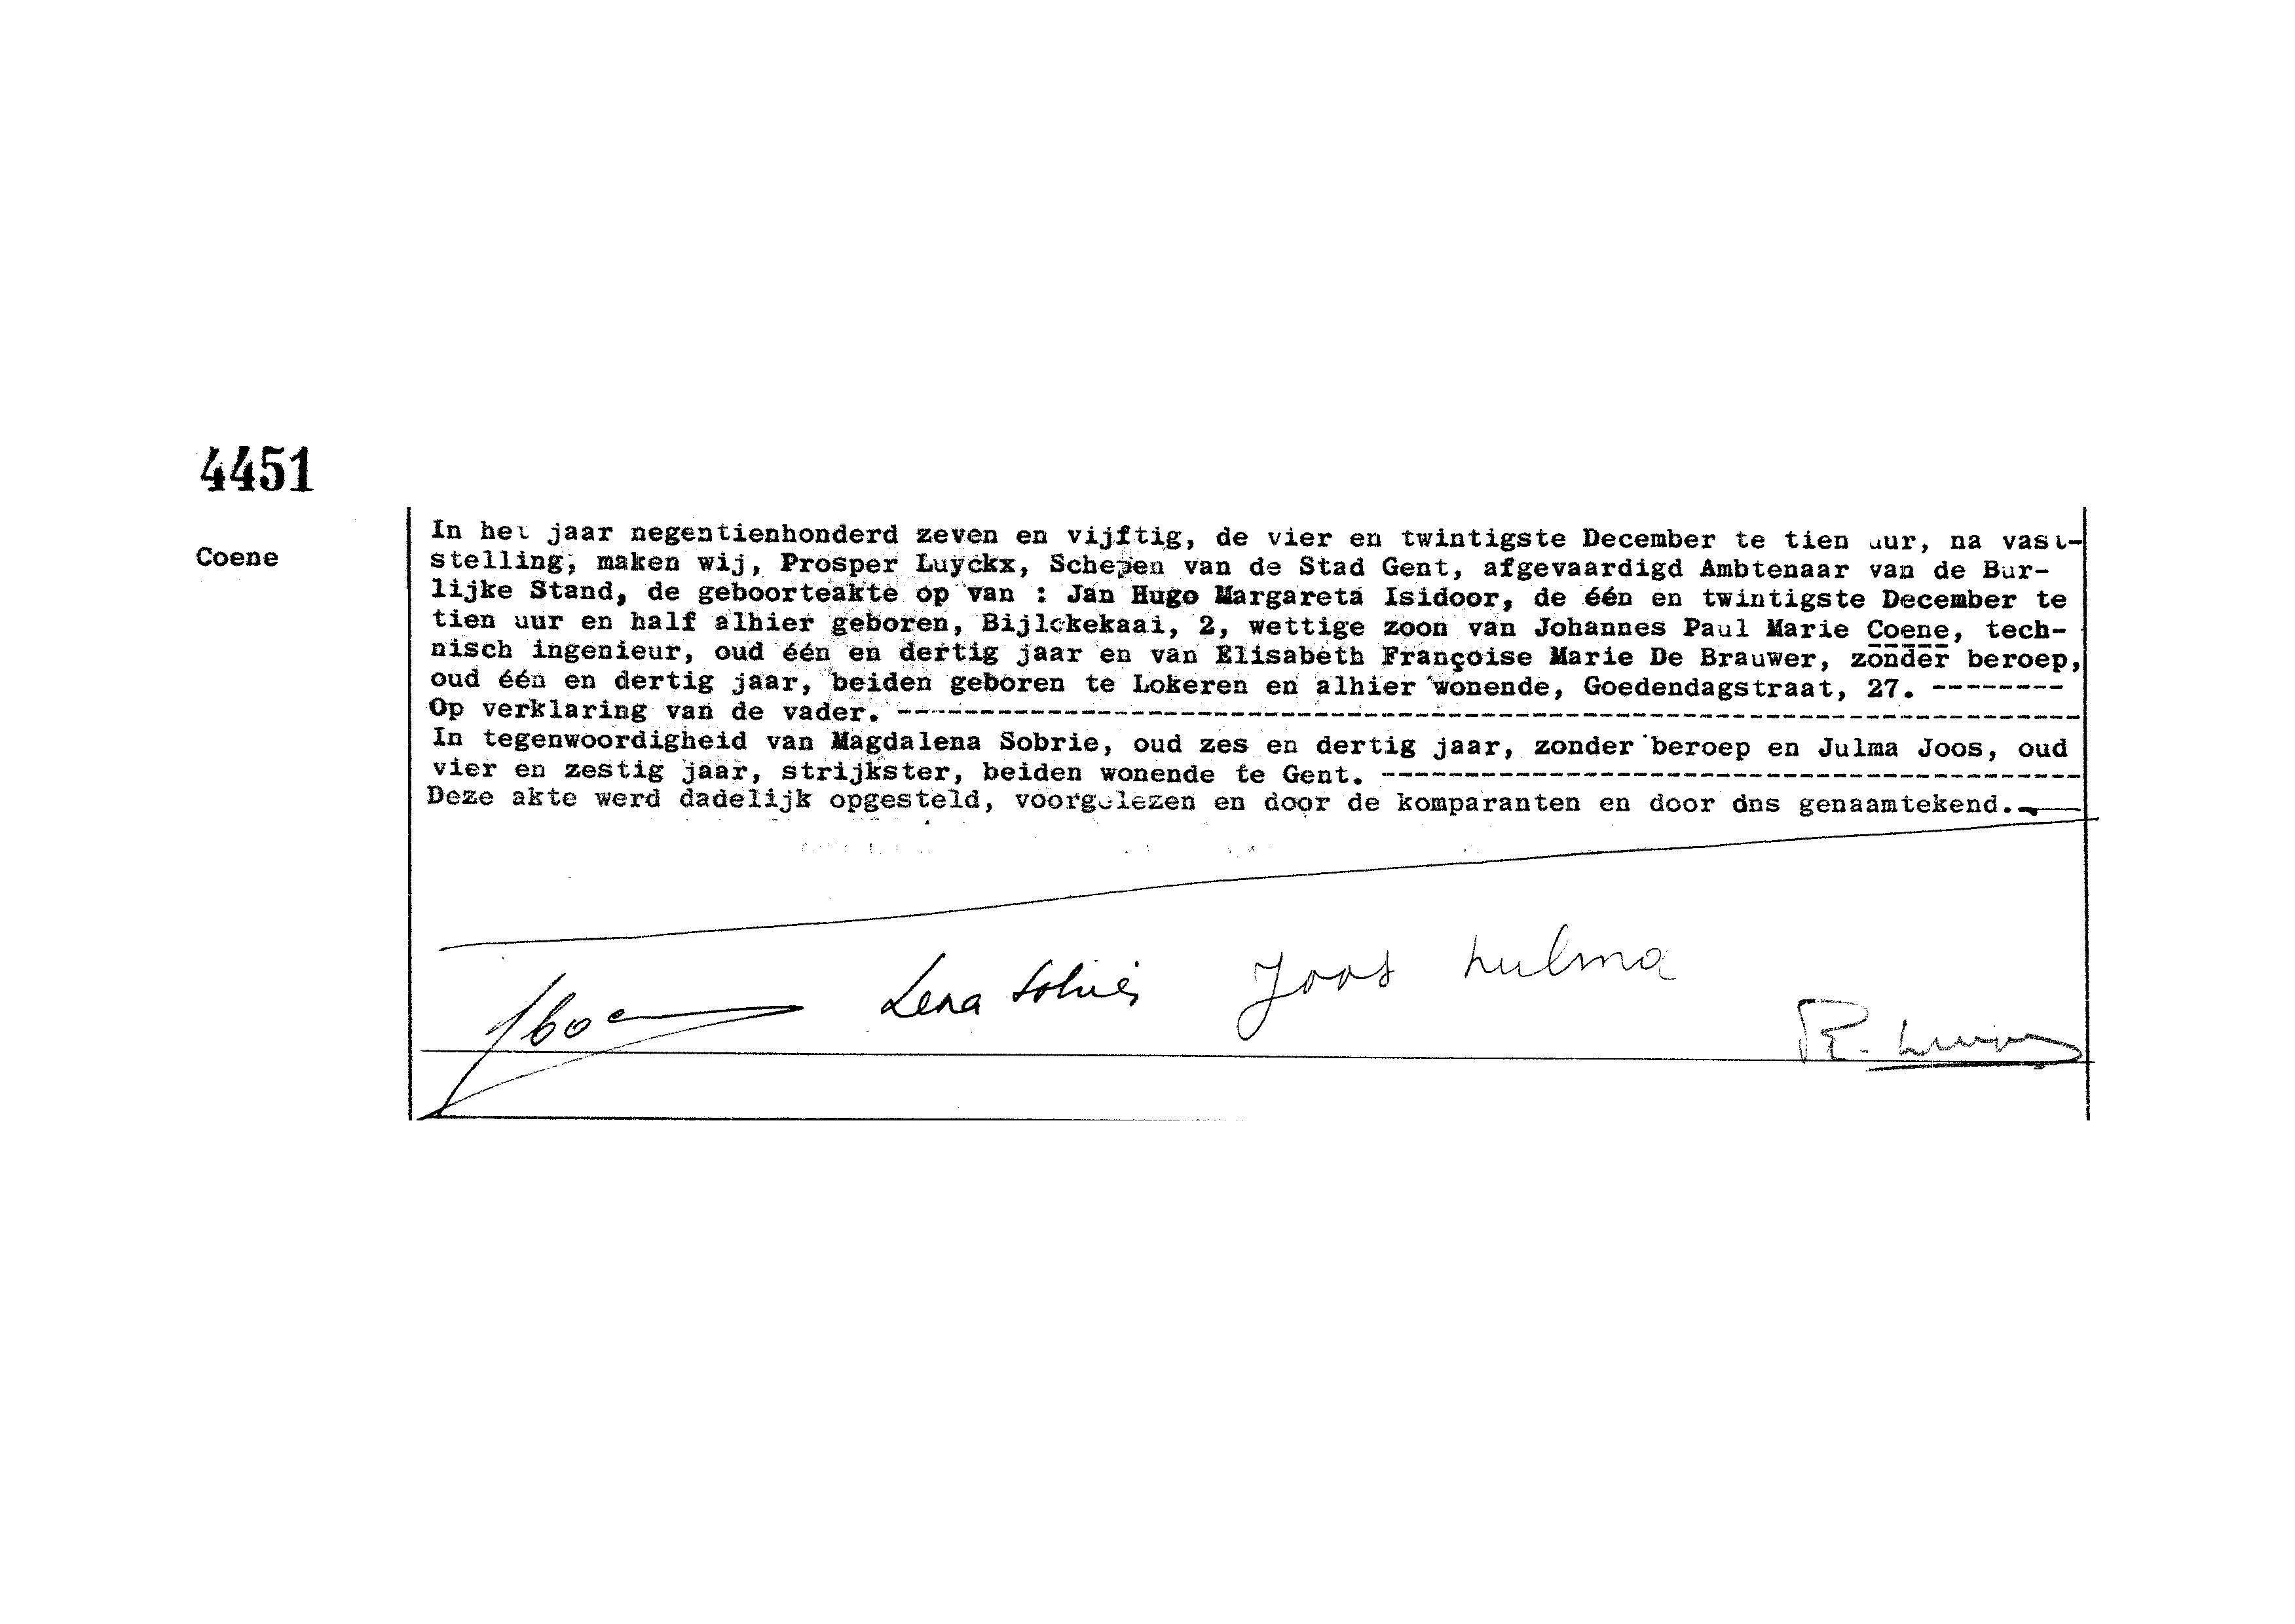 4451
Coene
In het jaar negentienhonderd zeven en vijftig, de vier en twintigste December te tien uur, na vast-
stelling, maken wij, Prosper Luyckx, Schepen van de Stad Gent, afgevaardigd Ambtenaar van de Bur-
lijke Stand, de geboorteakte op van : Jan Hugo Margareta Isidoor, de één en twintigste December te
tien uur en half alhier geboren, Bijlokekaai, 2, wettige zoon van Johannes Paul Marie Coene, tech-
nisch ingenieur, oud één en dertig jaar en van Elisabeth Françoise Marie De Brauwer, zonder beroep,
oud één en dertig jaar, beiden geboren te Lokeren en alhier wonende, Goedendagstraat, 27. --------
Op verklaring van de vader. ------------------------------------------------------------------------
In tegenwoordigheid van Magdalena Sobrie, oud zes en dertig jaar, zonder beroep en Julma Joos, oud
vier en zestig jaar, strijkster, beiden wonende te Gent. ------------------------------------------
Deze akte werd dadelijk opgesteld, voorgelezen en door de komparanten en door dns genaamtekend.
Lena Sobrie Joos